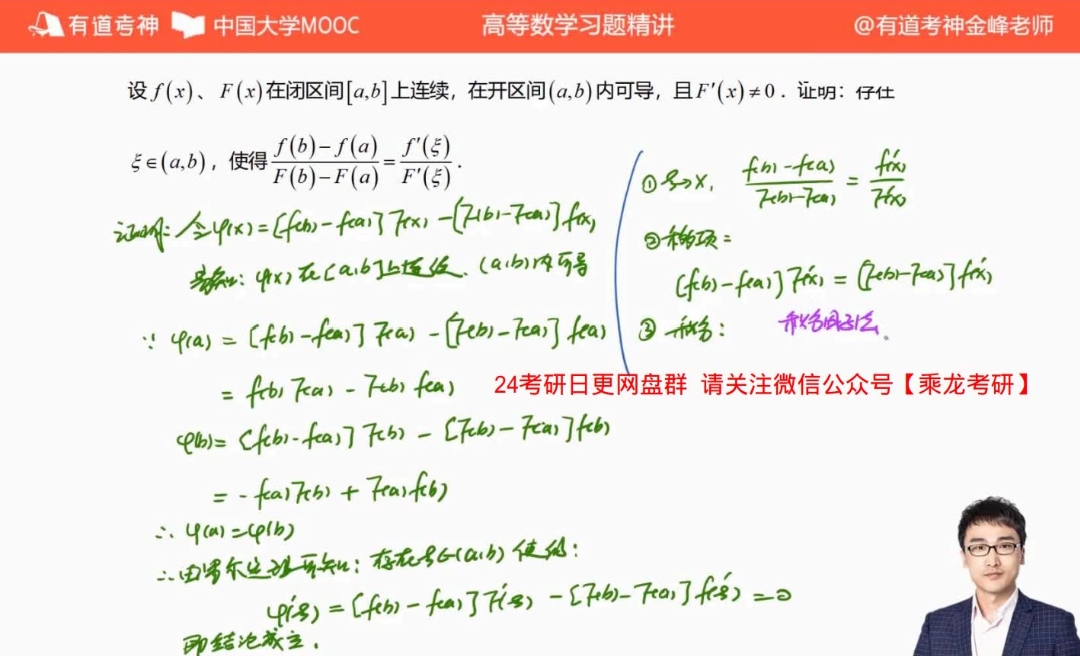 有道考神 中国大学MOOC 高等数学习题精讲 @有道考神金峰老师
设 f(x)、F(x)在闭区间[a,b]上连续，在开区间(a,b)内可导，且F'(x)≠0．证明：存在
ξ∈(a,b)，使得 (f(b)-f(a))/(F(b)-F(a)) = f'(ξ)/F'(ξ)．
证明：令φ(x)=[f(b)-f(a)]F(x)-[F(b)-F(a)]f(x)
易知：φ(x)在[a,b]上连续、(a,b)内可导
∵ φ(a) = [f(b)-f(a)]F(a) - [F(b)-F(a)]f(a)
= f(b)F(a) - F(b)f(a)
φ(b)= [f(b)-f(a)]F(b) - [F(b)-F(a)]f(b)
= -f(a)F(b) + F(a)f(b)
∴ φ(a)=φ(b)
∴由罗尔定理可知：存在ξ∈(a,b)使得：
φ'(ξ) = [f(b)-f(a)]F'(ξ) - [F(b)-F(a)]f'(ξ) = 0
即结论成立．
① ξ→x, (f(b)-f(a))/(F(b)-F(a)) = f'(x)/F'(x)
② 移项：
[f(b)-f(a)]F'(x) = [F(b)-F(a)]f'(x)
③ 积分： 积分因子法
24考研日更网盘群 请关注微信公众号【乘龙考研】